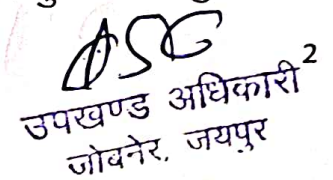 2
उपखण्ड अधिकारी
जोबनेर, जयपुर